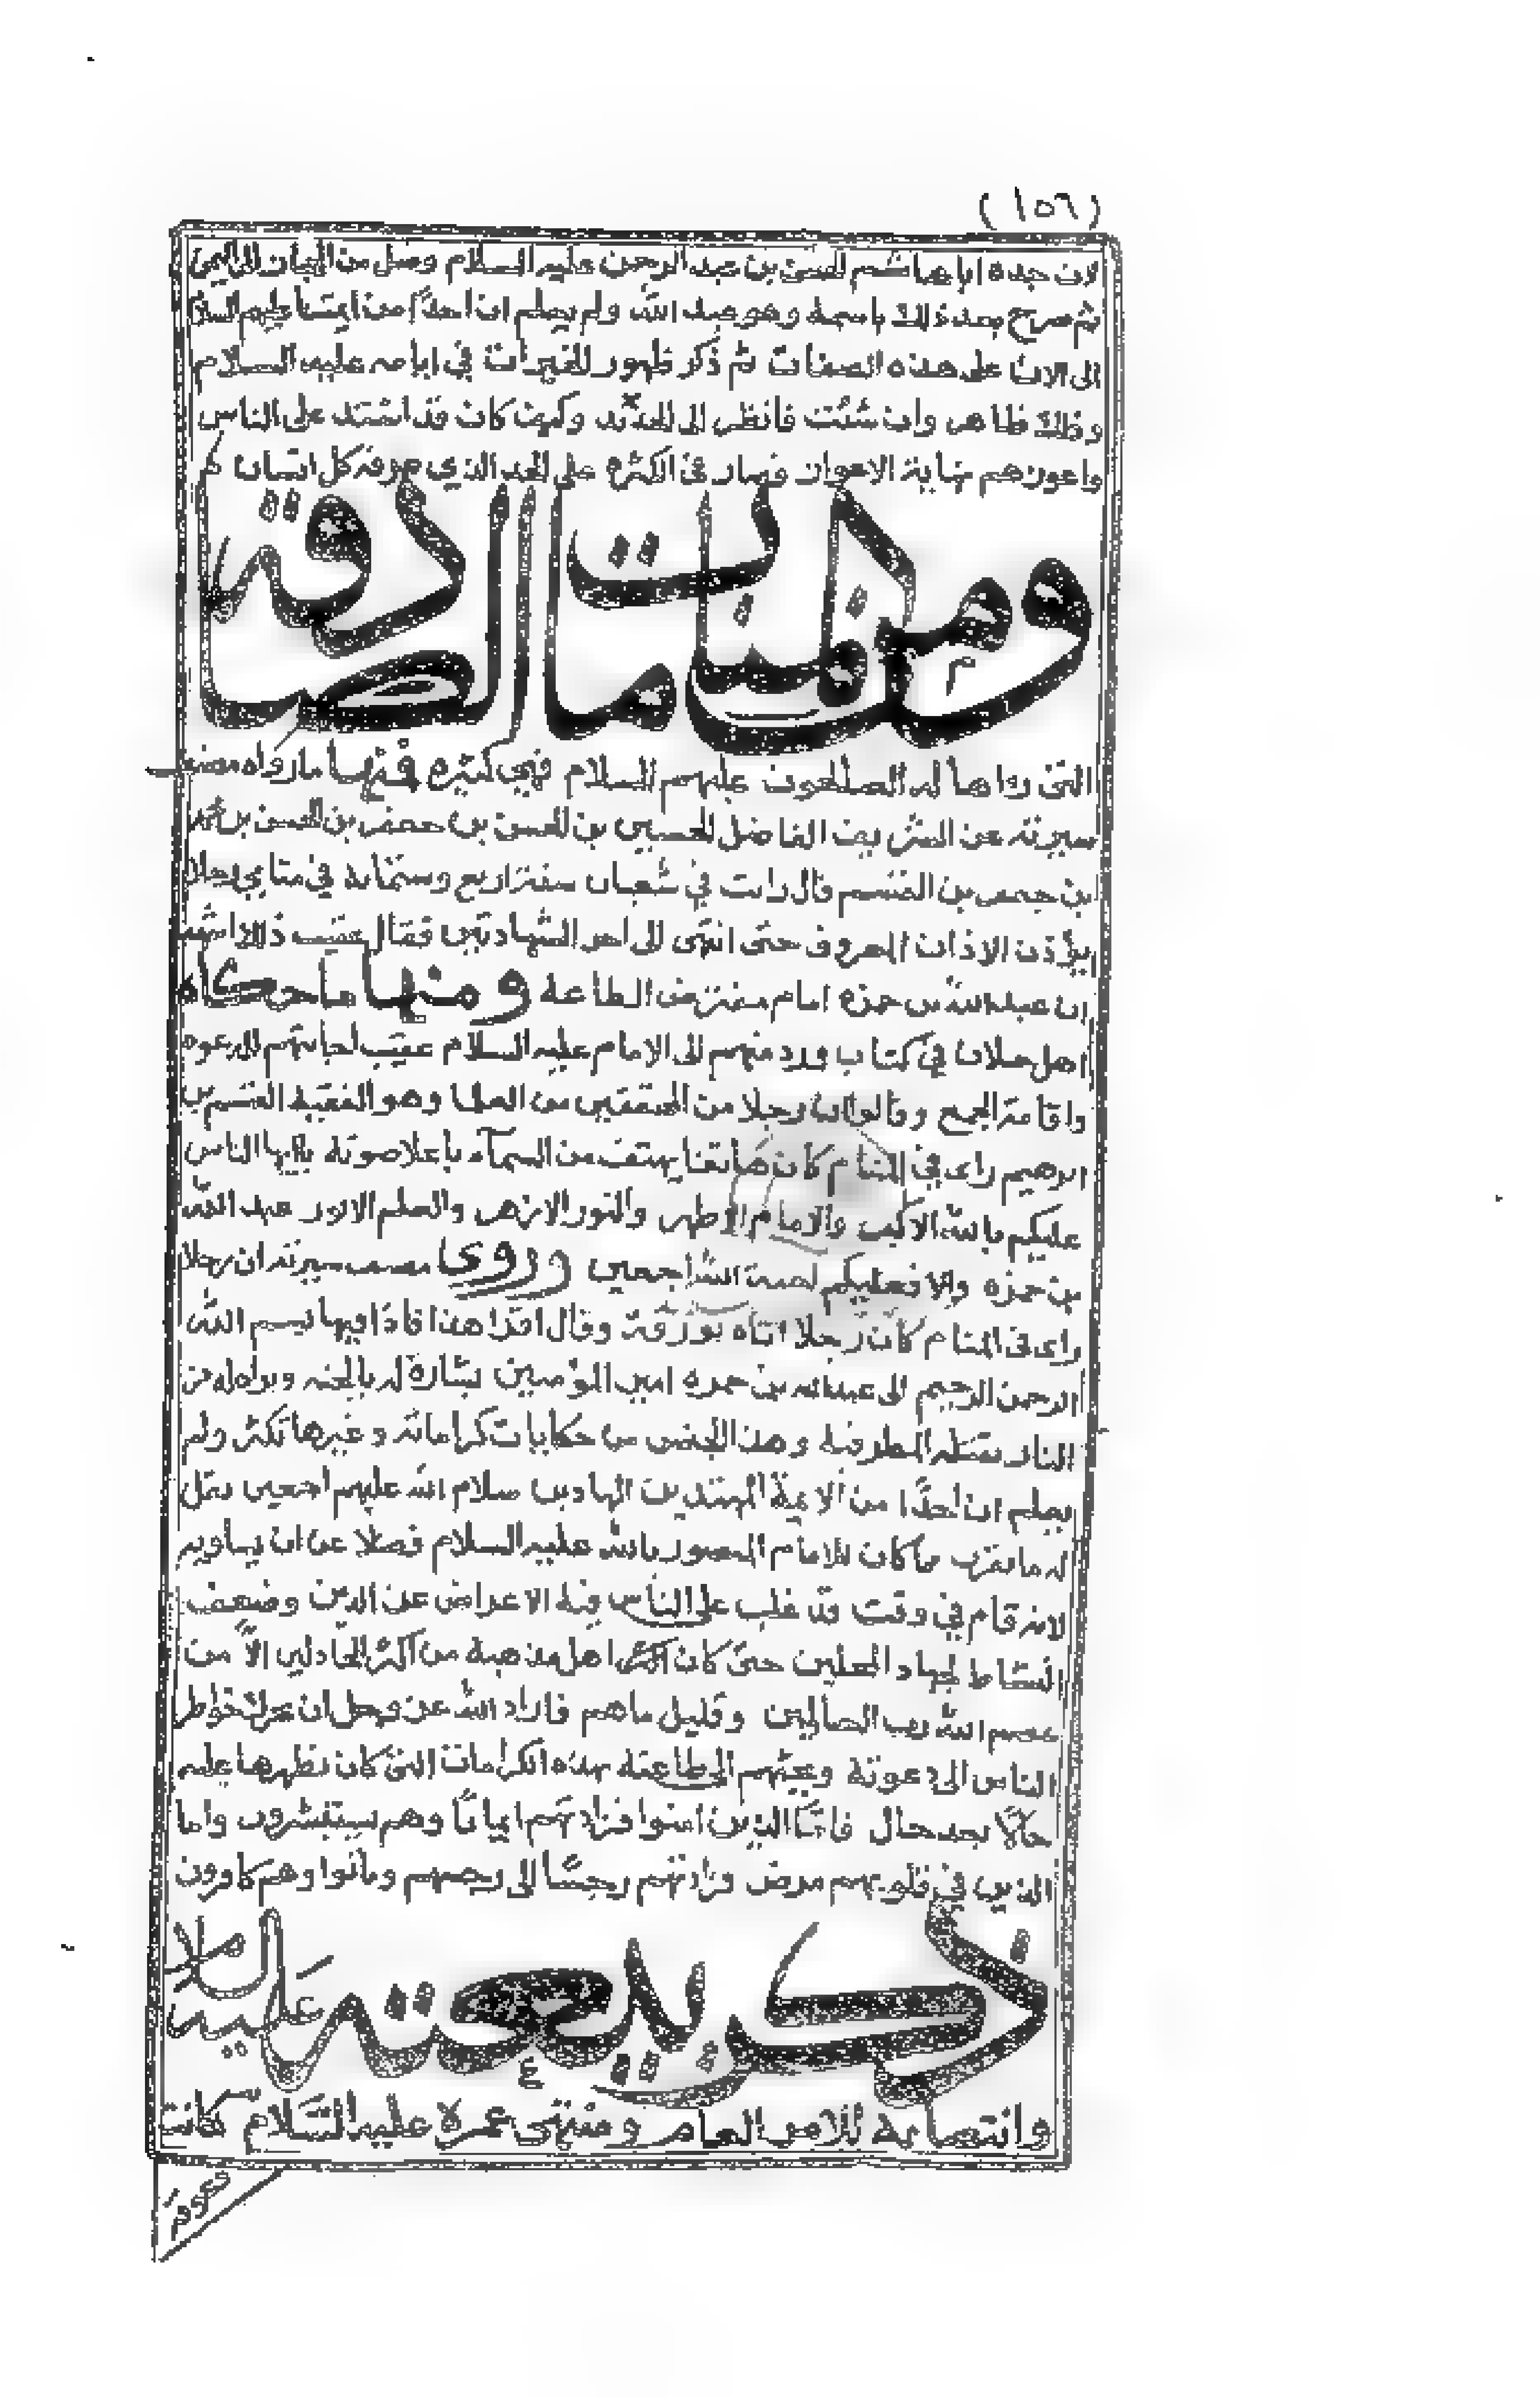 (١٥٦)
لان جده ابا هاشم الحسن بن عبد الرحمن عليه السلام وصل من الحجاز الى اليمن
ثم صرح بعد ذلك باسمه وهو عبد الله ولم يعلم ان احدًا من ايمتنا عليهم السلام
الى الان على هذه الصفات ثم ذكر ظهور الخيرات في ايامه عليه السلام
وذلك ظاهر وان شئت فانظر الى الحديد وكيف كان قد اشتد على الناس
واعوزهم نهاية الاعواز فصار في الكثره على الحد الذي عرفه كل انسان
ومن المنامات الصادقة
التى رواها له الصالحون عليهم السلام فهي كثيره فمنها ما رواه مصنف
سيرته عن الشريف الفاضل الحسين بن الحسن بن جعفر بن الحسن بن
بن جعفر بن القسم قال رايت في شعبان سنة اربع وستمائة في منامي رجلا
يؤذن الاذان المعروف حتى انتهى الى اخر الشهادتين فقال عقيب ذلك اشهد
ان عبد الله بن حمزه امام مفترض الطاعة ومنها ما حكاه
اهل حلان في كتاب ورد منهم الى الامام عليه السلام عقيب اجابتهم الدعوه
واقامة الجمع وقالوا ان رجلا من المحققين من العلما وهو الفقيه القسم بن
ابرهيم راى في المنام كان هاتفا يهتف من السمآء باعلا صوته ياايها الناس
عليكم بالله الاكبر والامام الاطهر والنور الازهر والعلم الانور عبد الله
بن حمزه والا فعليكم لعنة الله اجمعين وروى مصنف سيرته ان رجلا
راى في المنام كان رجلا اتاه بورقة وقال اقرا هذا فاذا فيها بسم الله
الرحمن الرحيم الى عبد الله بن حمزه امير المؤمنين بشارة له بالجنه وبراه له من
النار بقتله المطرفية وهذا الجنس من حكايات كراماته وغيرها تكثر ولم
يعلم ان احدًا من الايمة المهتدين الهادين سلام الله عليهم اجمعين نقل
له ما يقرب مما كان للامام المنصور بالله عليه السلام فضلا عن ان يساويه
لانه قام في وقت قد غلب على الناس فيه الاعراض عن الدين وضعف
النشاط لجهاد المحلين حتى كان اكثر اهل مذهبه من اكثر الخاذلين الا من
عصم الله رب العالمين وقليل ما هم فاراد الله عز وجل ان يحرك خواطر
الناس الى دعوته ويحثهم الى طاعته بهذه الكرامات التى كان يظهرها عليه
حالًا بعد حال فامّا الذين امنوا فزادتهم ايمانًا وهم يستبشرون واما
الذين في قلوبهم مرض فزادتهم رجسًا الى رجسهم وماتوا وهم كافرون
ذكر بيعته عليه السلام
وانتصابه للامر العام ومنتهى عمره عليه السّلام كانت
دعوته